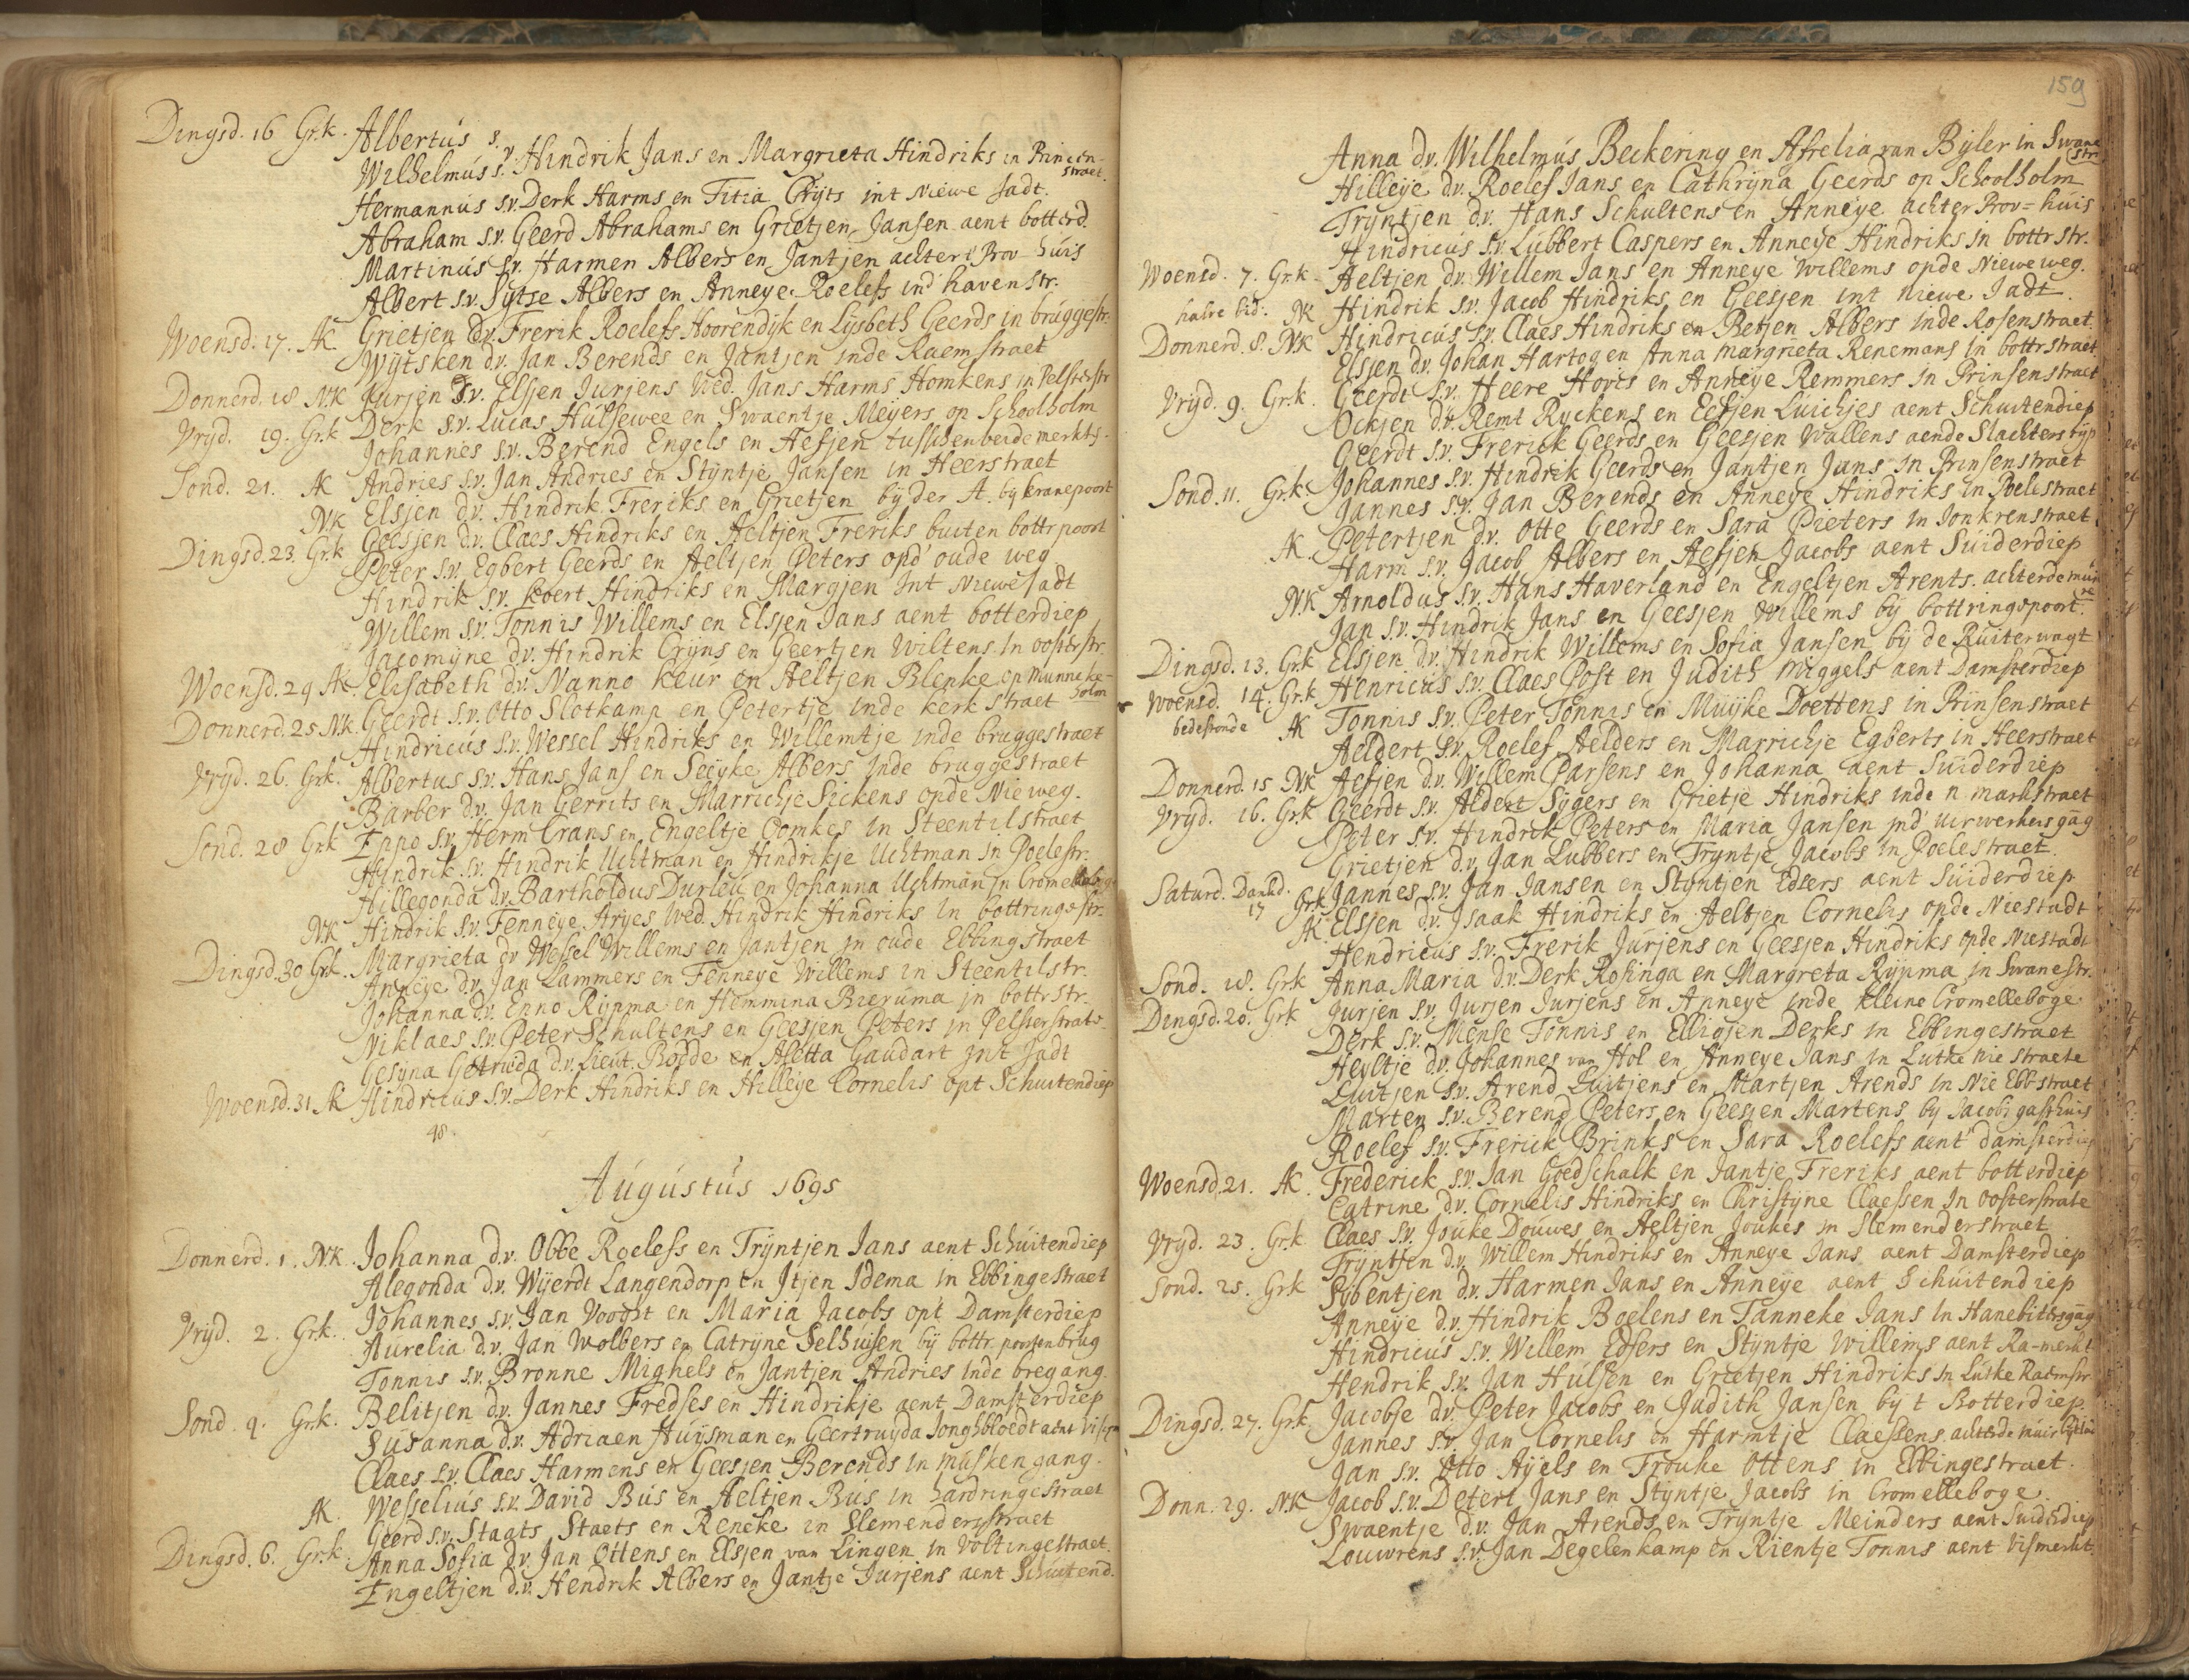 Dingsd. 16 Gr.k. Albertus s.
Wilhelmus s. v. Hindrik Jans en Margrieta Hindriks in Princen-
straet.
Hermannus s.v. Derk Harms en Titia Crijts int Niewe Jadt.
Abraham s.v. Geerd Abrahams en Grietjen Jansen aent botterd.
Martinus s.v. Harmen Albers en Jantjen achter t Prov-huis
Albert s.v. Sytse Albers en Anneye Roelefs ind havenstr.
Woensd. 17. AK Grietjen d.v. Frerik Roelefs Hoorendijk en Lysbeth Geerds in bruggestr.
Wytsken d.v. Jan Berends en Jantjen inde Raemstraet
Donnerd. 18 NK Jurjen s.v. Elsjen Jurjens Wed. Jans Harms Homkens in Pelsterstr
Vryd. 19. Gr.k Derk s.v. Lucas Hulsewee en Swaentje Meyers op Schoolholm
Johannes s.v. Berend Engels en Aefjen tusschen beide merkts.
Sond. 21. AK Andries s.v. Jan Andries en Styntje Jansen in Heerstraet
Elsjen d.v. Hindrik Freriks en Grietjen by der A. by kranepoort
NK Geessjen d.v. Claes Hindriks en Aeltjen Freriks buiten bottr poort
Dingsd. 23 Gr.k Peter s.v. Egbert Geerds en Aeltjen Peters opd' oude weg
Hindrik s.v. Evert Hindriks en Margjen Int Niewe Jadt
Willem s.v. Tonnis Willems en Elsjen Jans aent botterdiep
Jacomyne d.v. Hindrik Cryns en Geertjen Wiltens In oosterstr.
Woensd. 24 AK. Elisabeth d.v. Nanno Keur en Aeltjen Blenke op Munneke-
holm
Donnerd. 25 N.K. Geerdt s.v. Otto Slotkamp en Petertje inde kerk straet
Hindricus s.v. Wessel Hindriks en Willemtje inde bruggestraet
Vryd. 26. Gr.k. Albertus s.v. Hans Jans en Seeyke Albers Inde bruggestraet
Barber d.v. Jan Gerrits en Marrichje Sickens opde Nieweg.
Sond. 28 Gr.k Eppo s.v. Herm Crans en Engeltje Oomkes in Steentilstraet
Hindrik s.v. Hindrik Uchtman en Hindrikje Uchtman in Poelestr.
Hillegonda d.v. Bartholdus Durleu en Johanna Uchtman in
NK Hindrik s.v. Fenneye Aryes Wed. Hindrik Hindriks In bottringestr.
Dingsd. 30 Gr.k. Margrieta d.v Wessel Willems en Jantjen in oude Ebbingstraet
Anneye d.v. Jan Lammers en Fenneye Willems in Steentilstr.
Johanna d.v. Enno Rypma en Hemmina Bieruma in bottrstr.
Niklaes s.v. Peter Schultens en Geesjen Peters in Pelsterstrate.
Gesyna Getruda d.v. Lieut. Bodde en Aletta Gaudart Int Jadt
Woensd. 31 AK Hindricus s.v. Derk Hindriks en Hilleye Cornelis opt Schuitendiep
48.
Augustus 1695
Donnerd. 1. NK. Johanna d.v. Obbe Roelefs en Tryntjen Jans aent Schuitendiep
Alegonda d.v. Wyerdt Langendorp en Itjen Idema in Ebbingestraet
Vryd. 2. Gr.k. Johannes s.v. Jan Voogt en Maria Jacobs opt Damsterdiep
Aurelia d.v. Jan Wolbers en Catryne Selhuisen by bottr. poortenbrug
Tonnis s.v. Bronne Mighels en Jantjen Andries inde bregang.
Sond. 4. Gr.k. Belitjen d.v. Jannes Fredses en Hindrikje aent Damsterdiep
Susanna d.v. Adriaen Huysman en Geertruyda Jonghbloedt aent
Claes s.v. Claes Harmens en Geesjen Berends in musken gang.
AK. Wesselius s.v. David Bus en Aeltjen Bus in hardringestraet
Geerd s.v. Staats Staets en Reneke in Slemenderstraet
Dingsd. 6. Gr.k. Anna Sofia d.v. Jan Ottens en Elsjen van Lingen in Voltingestraet.
Engeltjen d.v. Hendrik Albers en Jantje Jurjens aent Schuitend.
159
Anna d.v. Wilhelmus Beckering en Afrelia van Byler in Swane
str.
Hilleye d.v. Roelef Jans en Cathryna Geerds op Schoolholm
Tryntjen d.v. Hans Schultens en Anneye achter Prov=huis
Hindricus s.v. Lubbert Caspers en Anneye Hindriks in bottrstr.
Woensd. 7. Gr.k. Aeltjen d.v. Willem Jans en Anneye Willems opde Nieweweg.
halve bid. NK Hindrik s.v. Jacob Hindriks en Geesjen int niewe Jadt.
Donnerd. 8. NK Hindricus s.v. Claes Hindriks en Betjen Albers inde Rosenstraet.
Elsjen d.v. Johan Hartog en Anna Margrieta Renemans in bottrstraet
Vryd. 9. Gr.k. Geerdt s.v. Heere Hovis en Anneye Remmers in Prinsenstraet
Ockjen d.v. Remt Ryckens en Eefjen Luichjes aent Schuitendiep
Geerdt s.v. Frerick Geerds en Geesjen Wallens aende Slachters ryp
Sond. 11. Gr.k. Johannes s.v. Hindrik Geerds en Jantjen Jans in Prinsenstraet
Jannes s.v. Jan Berends en Anneye Hindriks in Poelestraet
AK. Petertjen d.v. Otte Geerds en Sara Pieters in Jonkrenstraet
Harm s.v. Jacob Albers en Aefjen Jacobs aent Suiderdiep
NK Arnoldus s.v. Hans Haverland en Engeltjen Arents. achter de muu
re
Jan s.v. Hindrik Jans en Geesjen Willems by bottringspoort.
Dingsd. 13. Gr.k Elsjen d.v. Hindrik Willems en Sofia Jansen by de Ruiterwagt
Woensd. 14. Gr.k Henricus s.v. Claes Post en Judith Miggels aent Damsterdiep
bedestonde AK Tonnis s.v. Peter Tonnis en Muyke Doettens in Prinsenstraet
Aeldert s.v. Roelef Aelders en Marrichje Egberts in Heerstraet
Donnerd. 15 NK Aefjen d.v. Willem Parsens en Johanna aent Suiderdiep
Vryd. 16. Gr.k Geerdt s.v. Aldert Sygers en Grietje Hindriks inde n markstraet
Peter s.v. Hindrik Peters en Maria Jansen ind' uirwerkersgag
Grietjen d.v. Jan Lubbers en Tryntje Jacobs in Poelestraet.
Saturd. Dankd.
17 Gr.k Jannes s.v. Jan Jansen en Styntjen Edsers aent Suiderdiep
AK Elsjen d.v. Isaak Hindriks en Aeltjen Cornelis opde Niestadt
Hendricus s.v. Frerik Jurjens en Geesjen Hindriks opde Niestadt
Sond. 18. Gr.k Anna Maria d.v. Derk Rosinga en Margreta Rypma in Swanestr.
Dingsd. 20. Gr.k Jurjen s.v. Jurjen Jurjens en Anneye inde kleine Cromelleboge
Derk s.v. Mense Tonnis en Elligjen Derks in Ebbingestraet
Heyltje d.v. Johannes van Hol en Anneye Jans in Lutke Nie straete
Luitjen s.v. Arend Luitjens en Martjen Arends in Nie Ebbstraet
Marten s.v. Berend Peters en Geesjen Martens by Jacobs gasthuis
Roelef s.v. Frerick Brinks en Sara Roelefs aent damsterdiep
Woensd. 21. AK. Frederick s.v. Jan Goedschalk en Jantje Freriks aent botterdiep
Catrine d.v. Cornelis Hindriks en Christyne Claessen In oosterstrate
Vryd. 23. Gr.k Claes s.v. Jouke Douwes en Aeltjen Joukes in Slemenderstraet
Tryntjen d.v. Willem Hindriks en Anneye Jans aent Damsterdiep
Sond. 25. Gr.k Sybentjen d.v. Harmen Jans en Anneye aent Schuitendiep
Anneye d.v. Hindrik Boelens en Tanneke Jans In Hanebittersgag
Hindricus s.v. Willem Edsers en Styntje Willems aent Ra-merkt
Hendrik s.v. Jan Hulsen en Grietjen Hindriks in Lutke Raemstr
Dingsd. 27. Gr.k. Jacobje d.v. Peter Jacobs en Judith Jansen by t Botterdiep.
Jannes s.v. Jan Cornelis en Harmtje Claessens. achter de muir
Jan s.v. Otto Ayels en Frouke Ottens in Ebbingestraet.
Donn. 29. NK Jacob s.v. Detert Jans en Styntje Jacobs in Cromelleboge.
Swaentje d.v. Jan Arends en Tryntje Meinders aent Suiderdiep
Louwrens s.v. Jan Degelenkamp en Rientje Tonnis aent Vismerkt.